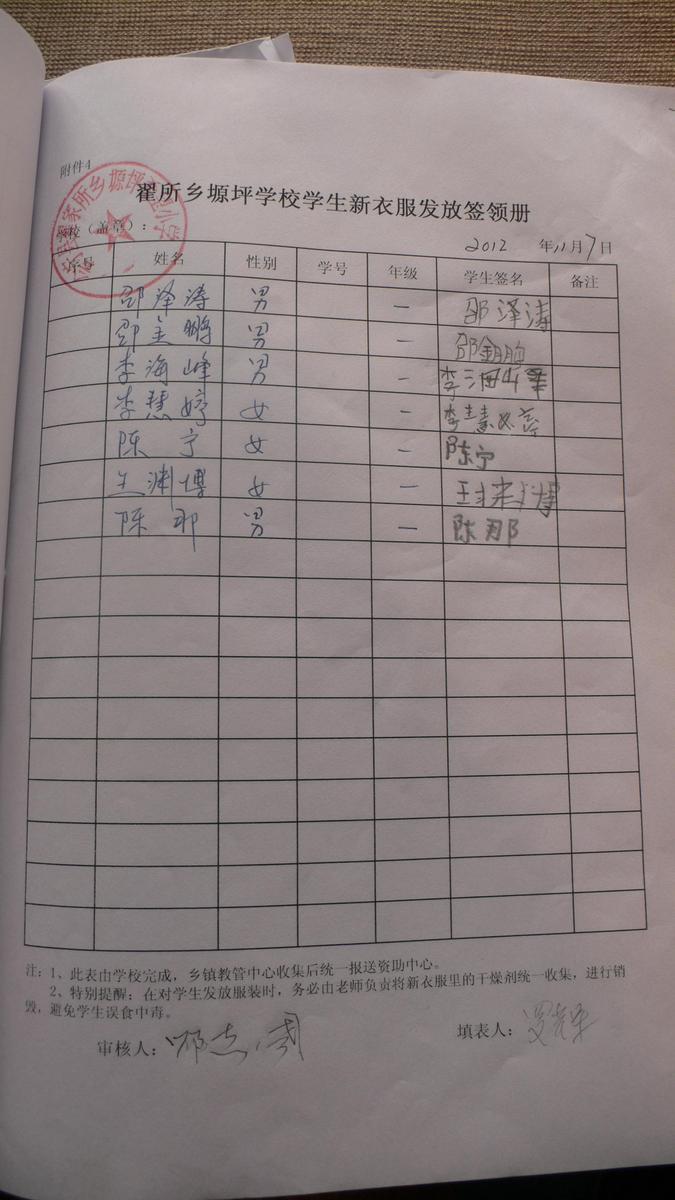 附件4
翟所乡塬坪学校学生新衣服发放签领册
学校（盖章）：
2012 年 11 月 7 日
序号 姓名 性别 学号 年级 学生签名 备注
邵泽涛 男 一 邵泽涛
邵 鹏 男 一 邵
李海峰 男 一 李海峰
李慧婷 女 一 李慧婷
陈宁 女 一 陈宁
王渊博 女 一 王渊博
陈那 男 一 陈那
注：1、此表由学校完成，乡镇教管中心收集后统一报送资助中心。
2、特别提醒：在对学生发放服装时，务必由老师负责将新衣服里的干燥剂统一收集，进行销
毁，避免学生误食中毒。
审核人： 填表人：